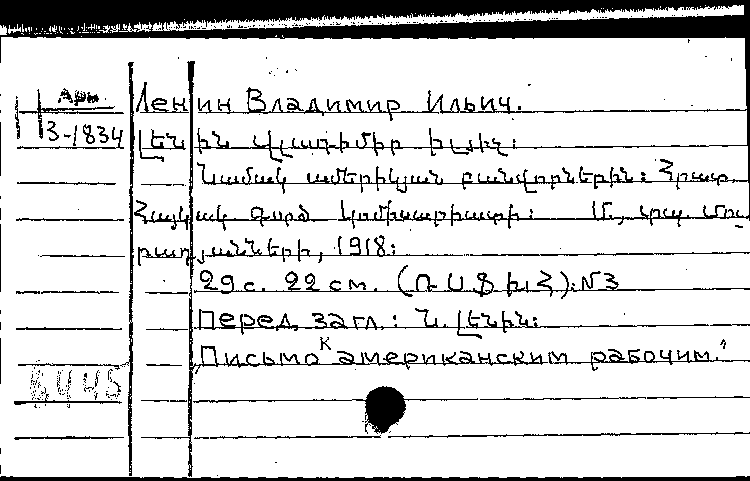 Арм
Ленин Владимир Ильич.
3-1834
Լենին Վլադիմիր Իլյիչ:
Նամակ ամերիկյան բանվորներին: Հրատ.
Հայկակ գործ. կոմիսարիատի: Մ., տպ.
1918:
29 с. 22 см. (ՌՍՖԽՀ): № 3
Перед. загл.: Ն. Լենին:
„Письмо к американским рабочим."
6445